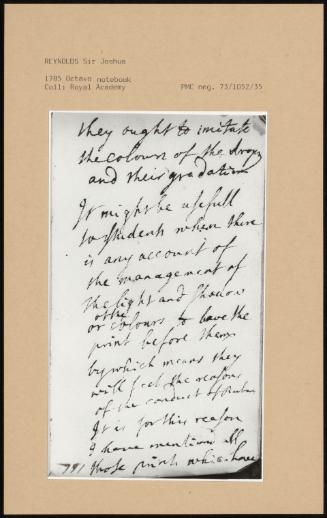 REYNOLDS Sir Joshua
1785 Octavo notebook
Coll: Royal Academy
PMC neg. 73/1052/35
they ought to imitate
the colours of the
and their gradation
It might be usefull
to students when there
is any account of
the management of
the light and shadow
or the
or colours to have the
print before them
by which means they
will feel the reasons
of the conduct of Ruben
It is for this reason
I have mentioned all
those prints which have